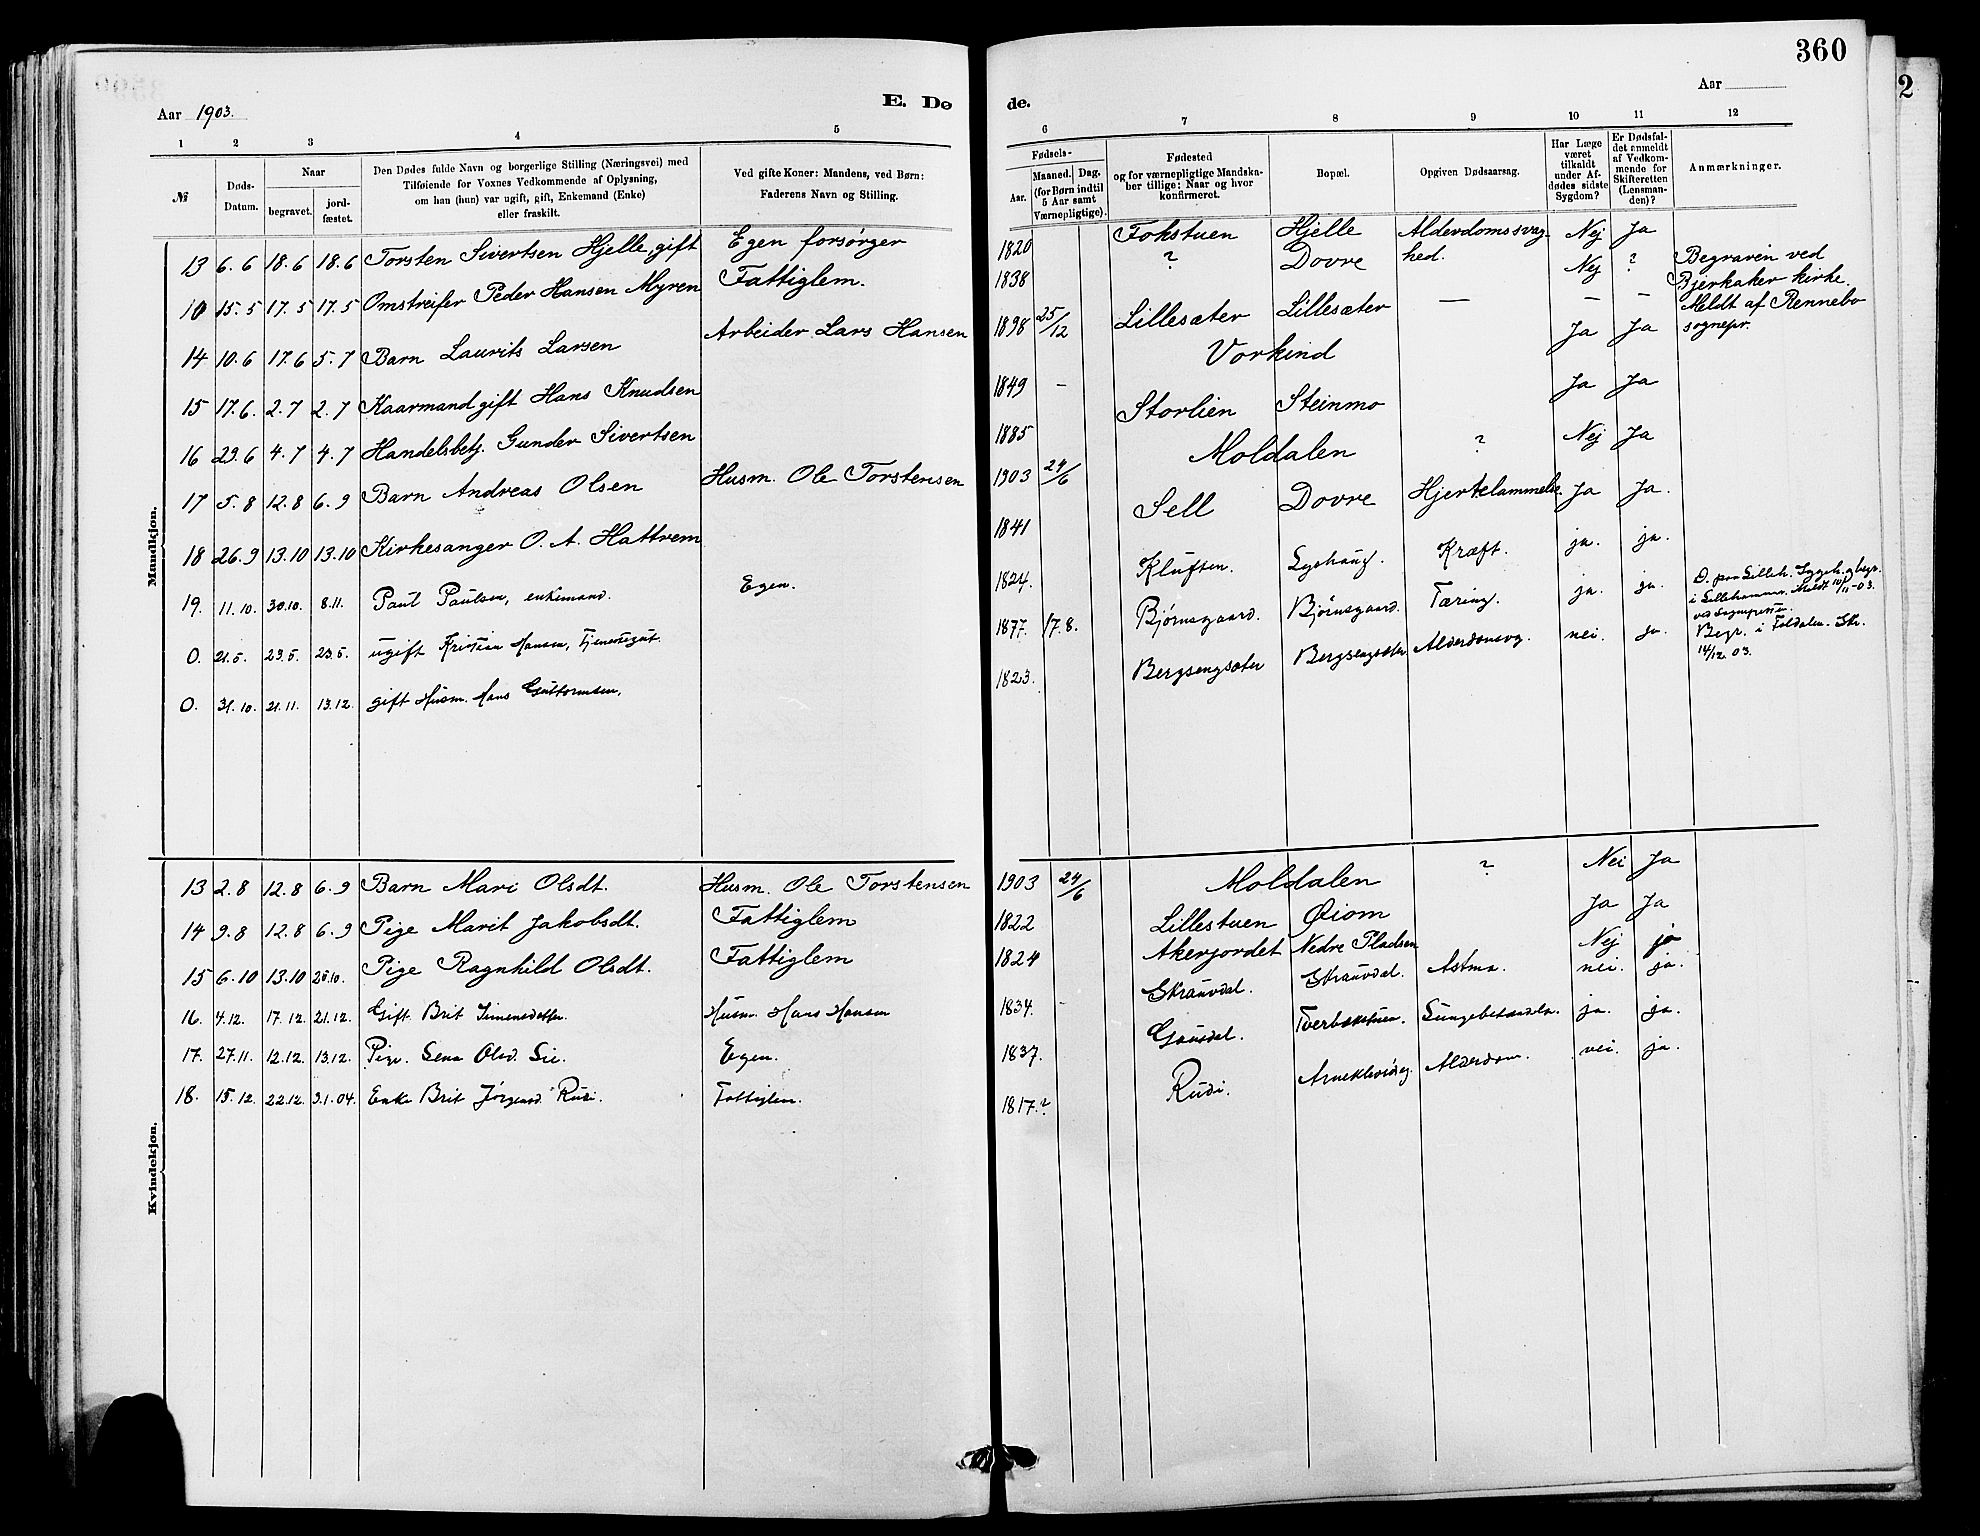 360
2
Aar 1903.
E. Dø
de.
Aar
1 2 3 4 5 6 7 8 9 10 11 12
№
Døds-Datum.
Naar
begravet.
jord-fæstet.
Den Dødes fulde Navn og borgerlige Stilling (Næringsvei) med
Tilføiende for Voxnes Vedkommende af Oplysning,
om han (hun) var ugift, gift, Enkemand (Enke)
eller fraskilt.
Ved gifte Koner: Mandens, ved Børn:
Faderens Navn og Stilling.
Fødsels-
Aar.
Maaned. Dag.
(for Børn indtil
5 Aar samt
Værnepligtige).
Fødested
og for værnepligtige Mandska-
ber tillige: Naar og hvor
konfirmeret.
Bopæl.
Opgiven Dødsaarsag.
Har Læge
været
tilkaldt
under Af-
dødes sidste
Sygdom?
Er Dødsfal-
det anmeldt
af Vedkom-
mende for
Skifteretten
(Lensman-
den)?
Anmærkninger.
Mandkjøn.
13 6.6 18.6 18.6 Torsten Sivertsen Hjelle, gift Egen forsørger 1820 Fokstuen Hjelle Alderdomssvag-hed. Nej Ja
10 15.5 17.5 17.5 Omstreifer Peder Hansen Myren Fattiglem. 1838 ? Dovre Nej ? Begraven ved
Bjerkaker kirke.
Meldt af Rennebo
sognepr.
14 10.6 17.6 5.7 Barn Laurits Larsen Arbeider Lars Hansen 1898 25/12 Lillesæter Lillesæter — — —
15 17.6. 2.7 2.7 Kaarmand gift Hans Knudsen 1849 - Vorkind Ja Ja
16 29.6 4.7 4.7 Handelsbetj. Gunder Sivertsen 1885 Storlien Steinmo Ja Ja
17 5.8 12.8 6.9 Barn Andreas Olsen Husm. Ole Torstensen 1903 24/6 Moldalen ? Nej Ja
18 26.9 13.10 13.10 Kirkesanger O. A. Hattrem 1841 Sell Dovre Hjertelammelse. Ja Ja.
19. 11.10. 30.10. 8.11. Paul Paulsen, enkemand. Egen. 1824. Kluften. Lyshaug. Kræft. ja. ja.
0. 21.5. 29.5. 29.5. ugift Kristian Hansen, Tjenestegut. 1877. 17.8. Bjørnsgaard. Bjørnsgaard. Tæring. ja. ja. D. paa Lilleh. Sygeh. og begr.
i Lillehammer. Meldt 10/11-03.
ved Sognepresten.
0. 31.10. 21.11. 13.12. gift Husm. Hans Guttormsen, 1823. Bergsengsæter Bergsengsæter Alderdomssvag. nei. ja. Begr. i Foldalen. Skr.
14/12.03.
Kvindekjøn.
13 2.8 12.8 6.9 Barn Mari Olsdt. Husm. Ole Torstensen 1903 24/6 Moldalen ? Nei Ja
14 9.8 12.8 6.9 Pige Marit Jakobsdt. Fattiglem 1822 Lillestuen Øiom Ja Ja
15 6.10 13.10 25.10. Pige Ragnhild Olsdt. Fattiglem 1824 Akerjordet Nedre Pladsen Nej ja
16. 4.12. 17.12. 21.12. Gift Brit Simensdatter. Husm. Hans Hansen 1834. - Skrauvdal. Skrauvdal. Astma. nei. ja.
17. 27.11. 12.12. 13.12. Pige. Lena Olsd. Lie. Egen. 1837. Gausdal. Tverbækstuen. Lungebetændelse. ja. ja.
18. 15.12. 22.12. 3.1.04. Enke Brit Jørgensd. Rudi. Fattiglem. 1817.? Rudi. Alderdom. nei. ja.